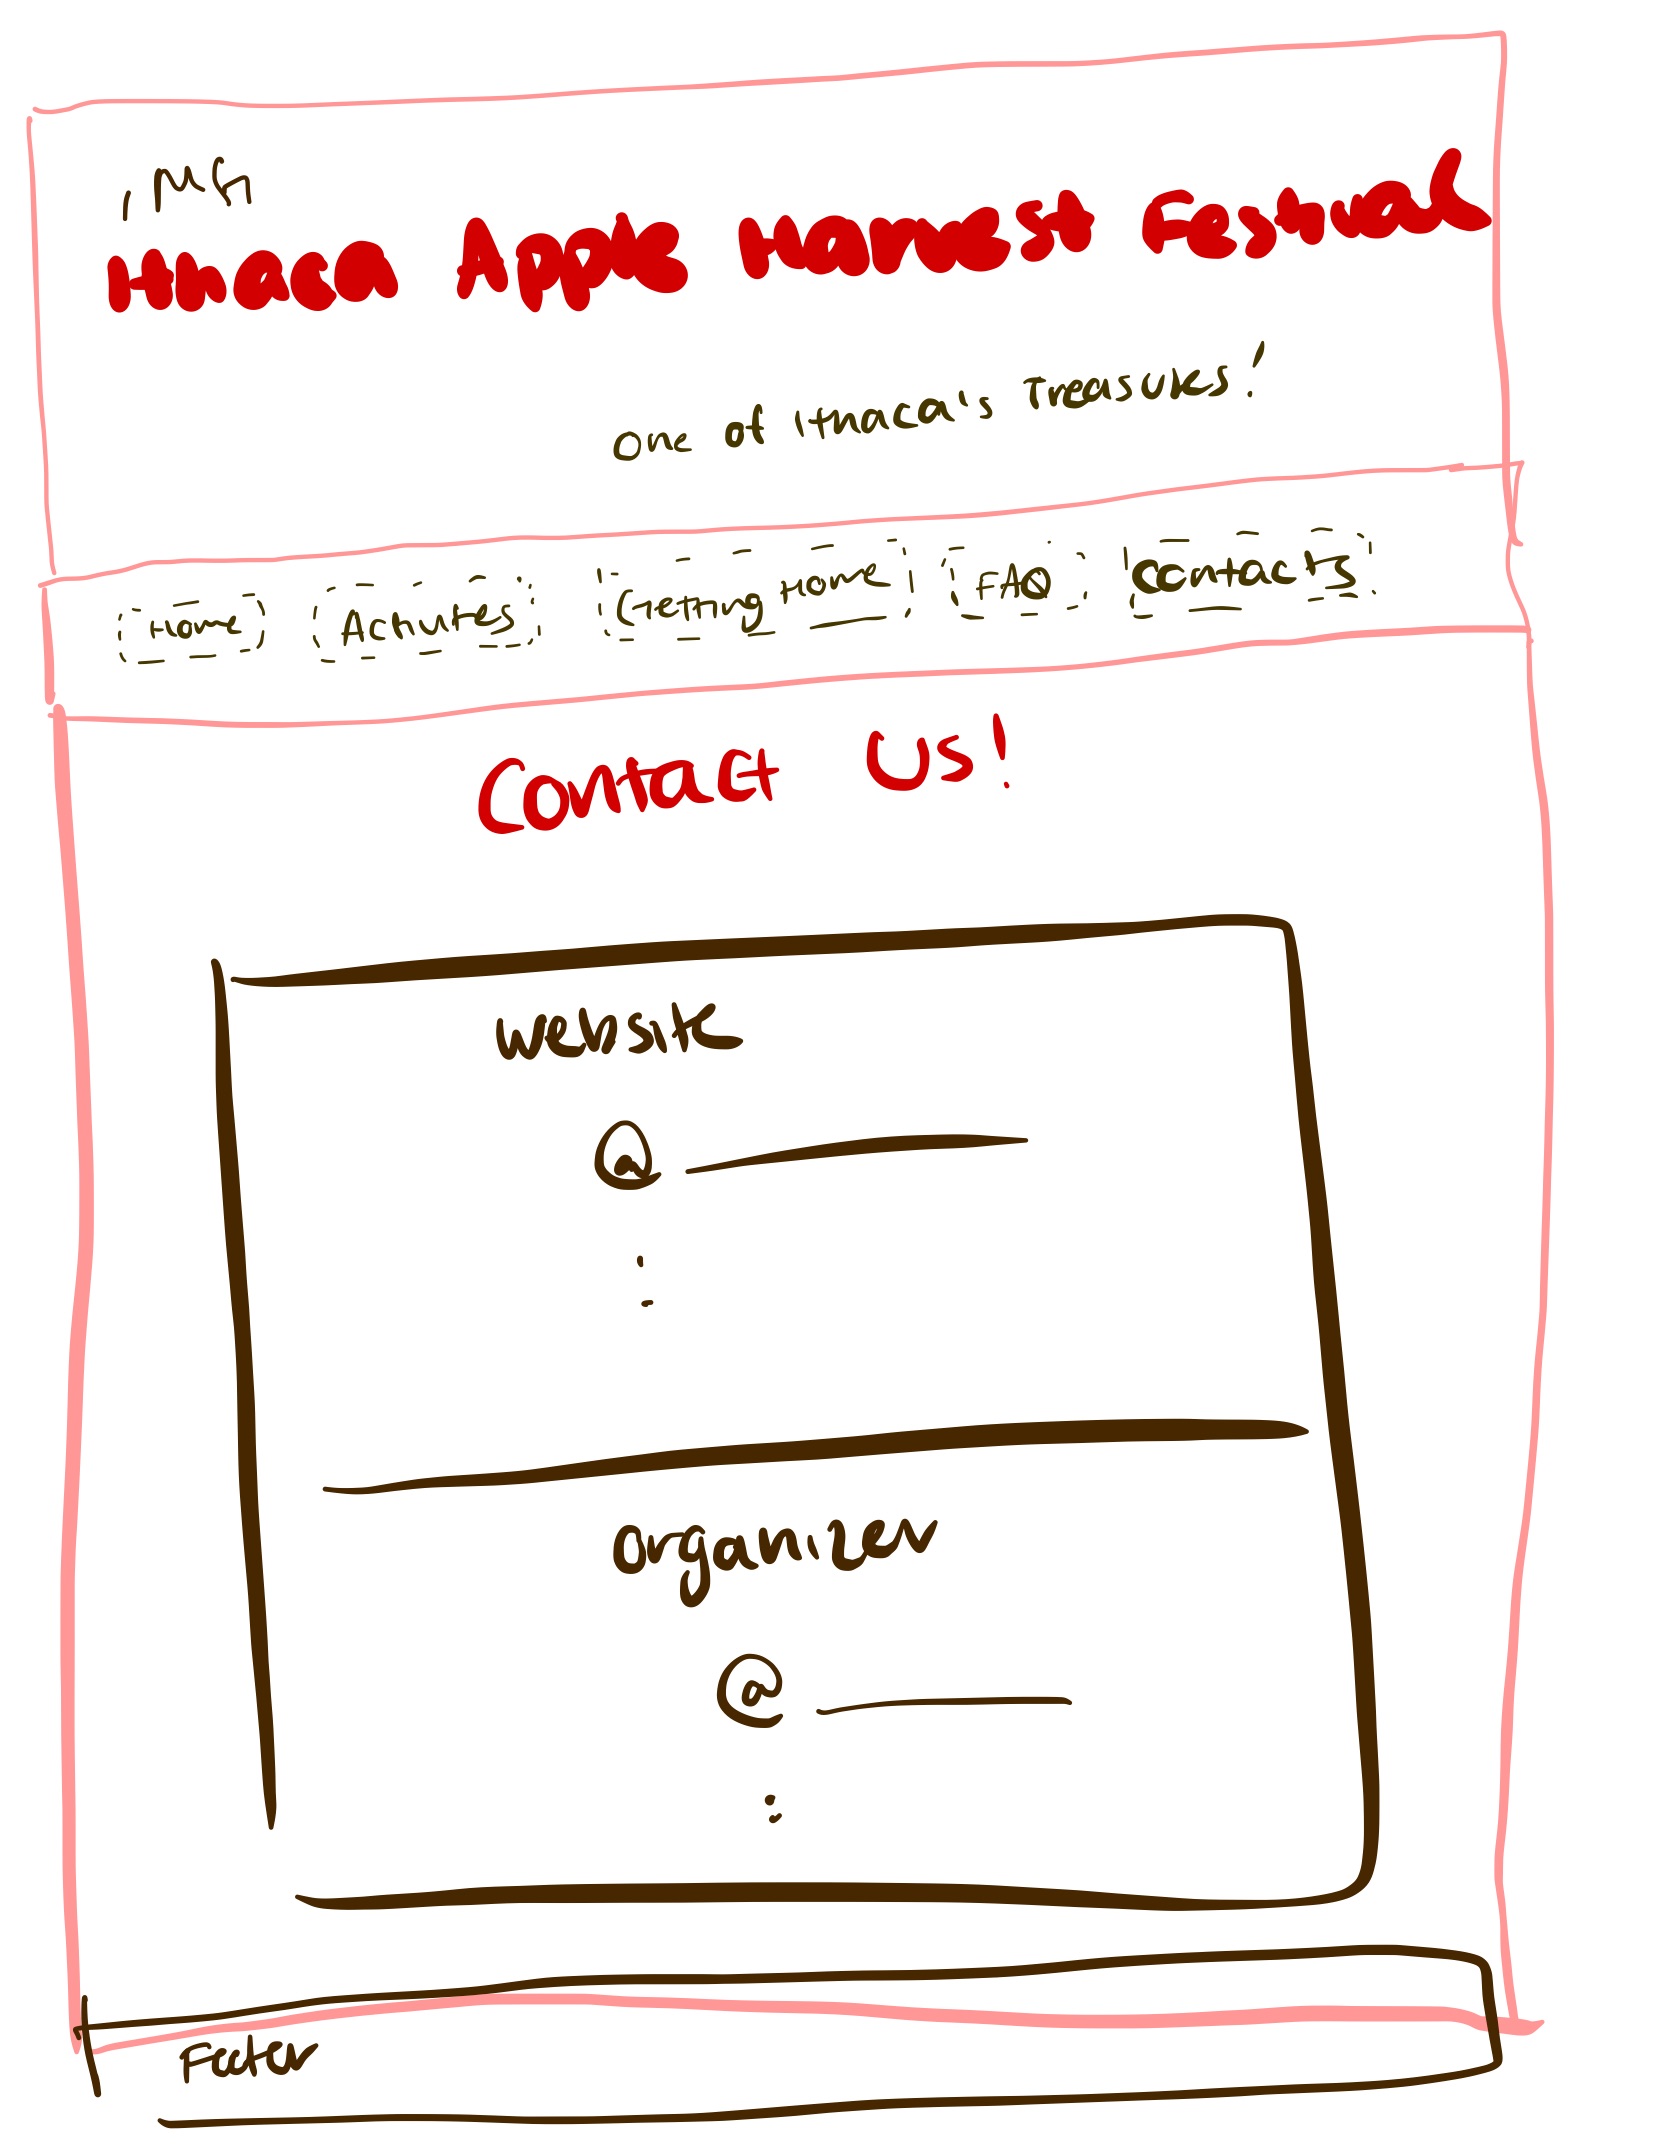 IMG
Ithaca Apple Harvest Festival
One of Ithaca's Treasures!
Home Activites Getting Home FAQ Contacts
Contact Us!
Website
@
Organizer
@
Footer